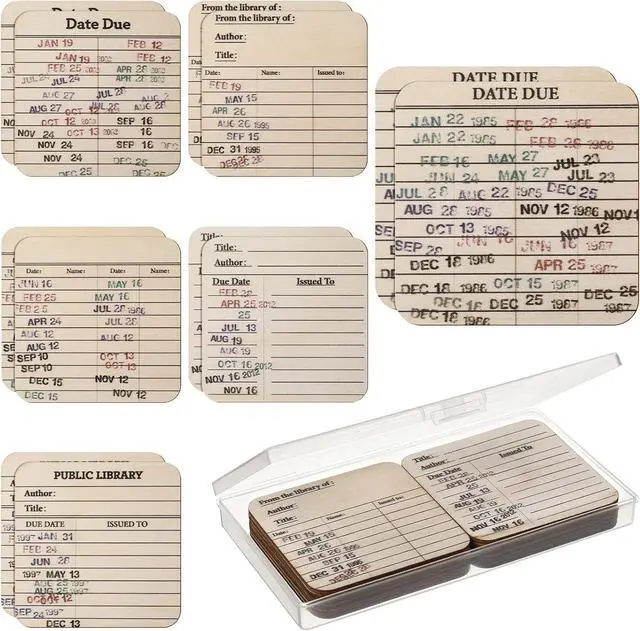 Date Due
JAN 19 FEB 12
JAN 19 2003 FEB 12
FEB 25 2003 APR 28 2003
JUL 24 JUL 24 APR 28 2003
AUG 27 JUL 28 AUG 2
AUG 27 OCT 12 JUL 28 AUG 28
OCT 12 2003 SEP 16
NOV 24 OCT 13 2003 SEP 16
NOV 24 SEP 16 DEC
NOV 24 DEC 25
DEC 25 DEC 25
From the library of :
From the library of :
Author:
Title:
Date: Name: Issued to:
FEB 19
MAY 15
APR 26
AUG 26 1995
SEP 15
DEC 31 1995
DEC 26
DATE DUE
DATE DUE
JAN 22 1985 FEB 28 1986
JAN 22 1985 FEB 28 1986
FEB 16 MAY 27 JUL 23
JUN 24 MAY 27 JUL 23
JUL 28 AUG 22 1985 DEC 25
AUG 28 1985 NOV 12 1986 NOV 1
OCT 13 1985 NOV 12
SEP 28 JUN 16 JUN 16 1987
DEC 18 1986 APR 25 1987
DEC 18 1986 OCT 15 1987
DEC 18 DEC 25 1987 DEC 25
DEC 18 1986 1987
Date: Name: Date: Name:
JUN 16 MAY 16
FEB 25 MAY 16
FEB 25 JUL 28 1986
APR 24 JUL 28
AUG 12 AUG 12
SEP 10 OCT 13
SEP 10 OCT 13
DEC 15 NOV 12
DEC 15 NOV 12
Title:
Title:
Author:
Due Date Issued To
FEB 28
APR 25 2012
25
JUL 13
AUG 19
AUG 19
OCT 16 2012
NOV 16 2012
NOV 16
PUBLIC LIBRARY
Author:
Title:
DUE DATE ISSUED TO
1997 JAN 31
FEB 24
JUN 28
1997 MAY 13
AUG 25 1997
AUG 25 1997
OCT 12
SEP 24 1997
DEC 13
From the library of :
Author:
Title:
Date: Name: Issued to:
FEB 19
MAY 15
APR 26
AUG 26 1995
SEP 15
DEC 31 1995
Title:
Author:
Due Date Issued To
FEB 28
APR 25 2012
25
JUL 13
AUG 19
AUG 19
OCT 16 2012
NOV 16 2012
NOV 16